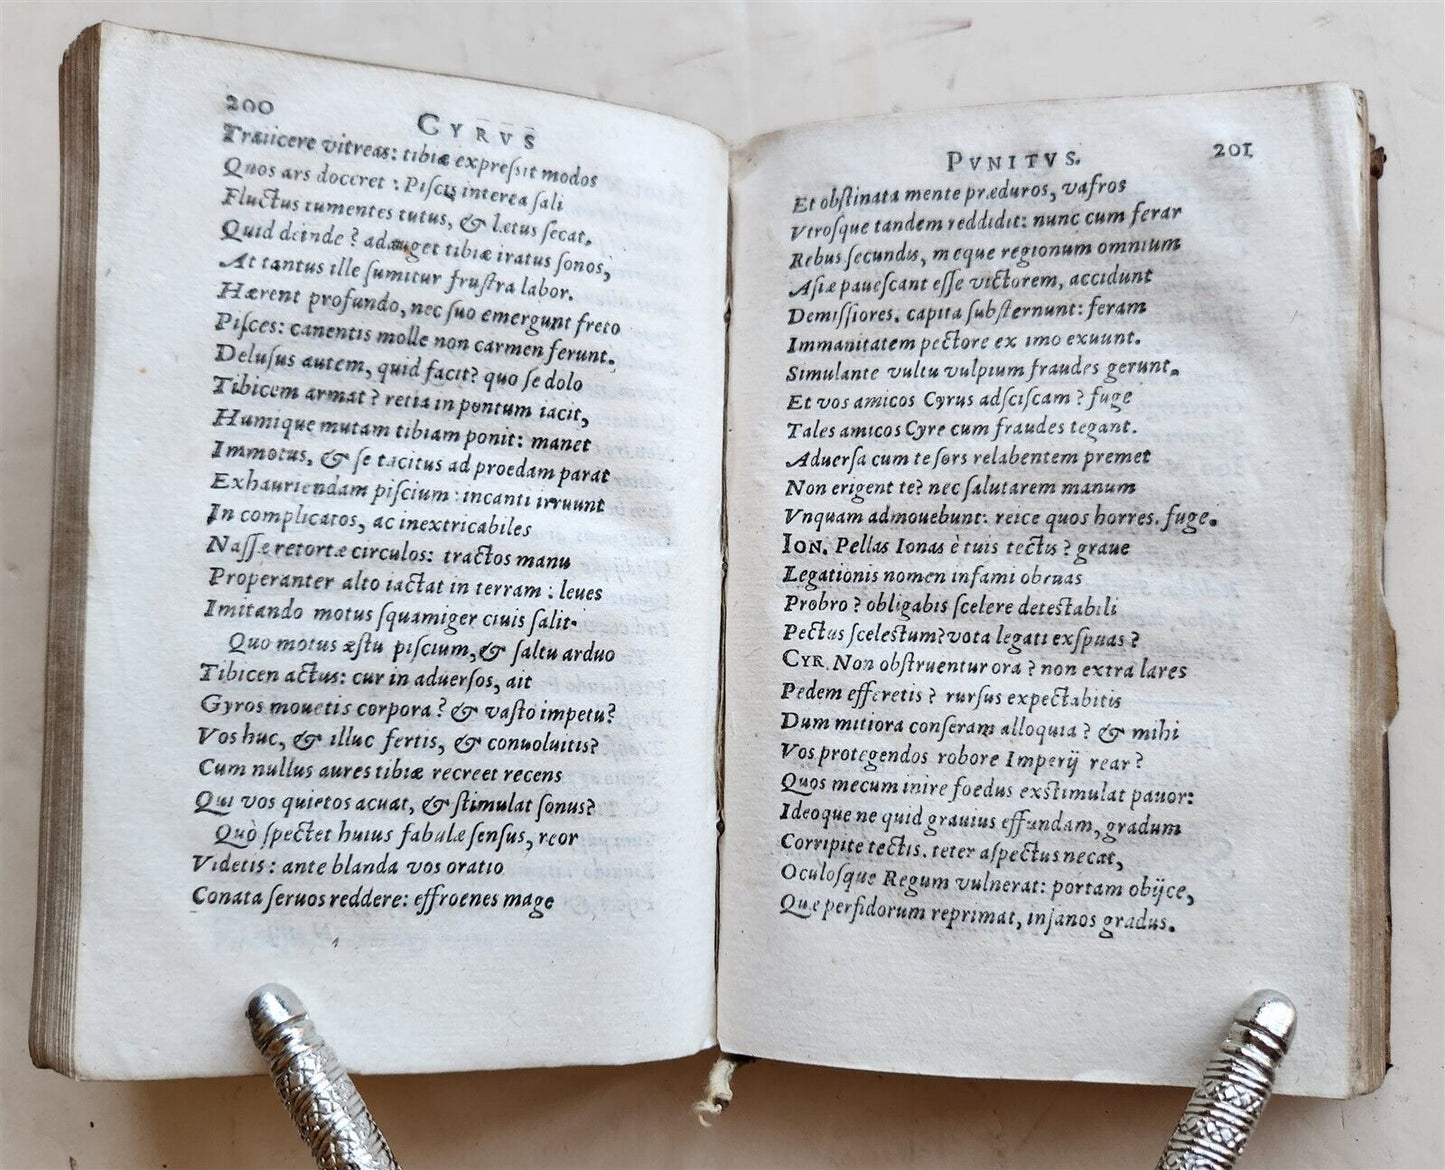 200
CYRVS
Traiicere vitreas: tibiæ expreſsit modos
Quos ars doceret: Piſcis interea ſali
Fluctus tumentes tutus, & lætus ſecat.
Quid deinde? adauget tibiæ iratus ſonos,
At tantus ille ſumitur fruſtra labor.
Hærent profundo, nec ſuo emergunt freto
Piſces: canentis molle non carmen ferunt.
Deluſus autem, quid facit? quo ſe dolo
Tibicem armat? retia in pontum iacit,
Humique mutam tibiam ponit: manet
Immotus, & ſe tacitus ad proedam parat
Exhauriendam piſcium: incanti irruunt
In complicatos, ac inextricabiles
Naſſæ retortæ circulos: tractos manu
Properanter alto iactat in terram: leues
Imitando motus ſquamiger ciuis ſalit.
Quo motus æſtu piſcium, & ſaltu arduo
Tibicen actus: cur in aduerſos, ait
Gyros mouetis corpora? & vaſto impetu?
Vos huc, & illuc fertis, & conuoluitis?
Cum nullus aures tibiæ recreet recens
Qui vos quietos acuat, & ſtimulat ſonus?
Quò ſpectet huius fabulæ ſenſus, reor
Videtis: ante blanda vos oratio
Conata ſeruos reddere: effroenes mage
PVNITVS.
201
Et obſtinata mente præduros, vafros
Vtroſque tandem reddidit: nunc cum ferar
Rebus ſecundis, meque regionum omnium
Aſiæ paueſcant eſſe victorem, accidunt
Demiſſiores. capita ſubſternunt: feram
Immanitatem pectore ex imo exuunt.
Simulante vultu vulpium fraudes gerunt.
Et vos amicos Cyrus adſciſcam? fuge
Tales amicos Cyre cum fraudes tegant.
Aduerſa cum te ſors relabentem premet
Non erigent te? nec ſalutarem manum
Vnquam admouebunt: reice quos horres. fuge.
ION. Pellas Ionas è tuis tectis? graue
Legationis nomen infami obruas
Probro? obligabis ſcelere deteſtabili
Pectus ſceleſtum? vota legati exſpuas?
CYR. Non obſtruentur ora? non extra lares
Pedem efferetis? rurſus expectabitis
Dum mitiora conſeram alloquia? & mihi
Vos protegendos robore Imperij rear?
Quos mecum inire foedus exſtimulat pauor:
Ideoque ne quid grauius effundam, gradum
Corripite tectis. teter aſpectus necat,
Oculoſque Regum vulnerat: portam obijce,
Quæ perfidorum reprimat, inſanos gradus.